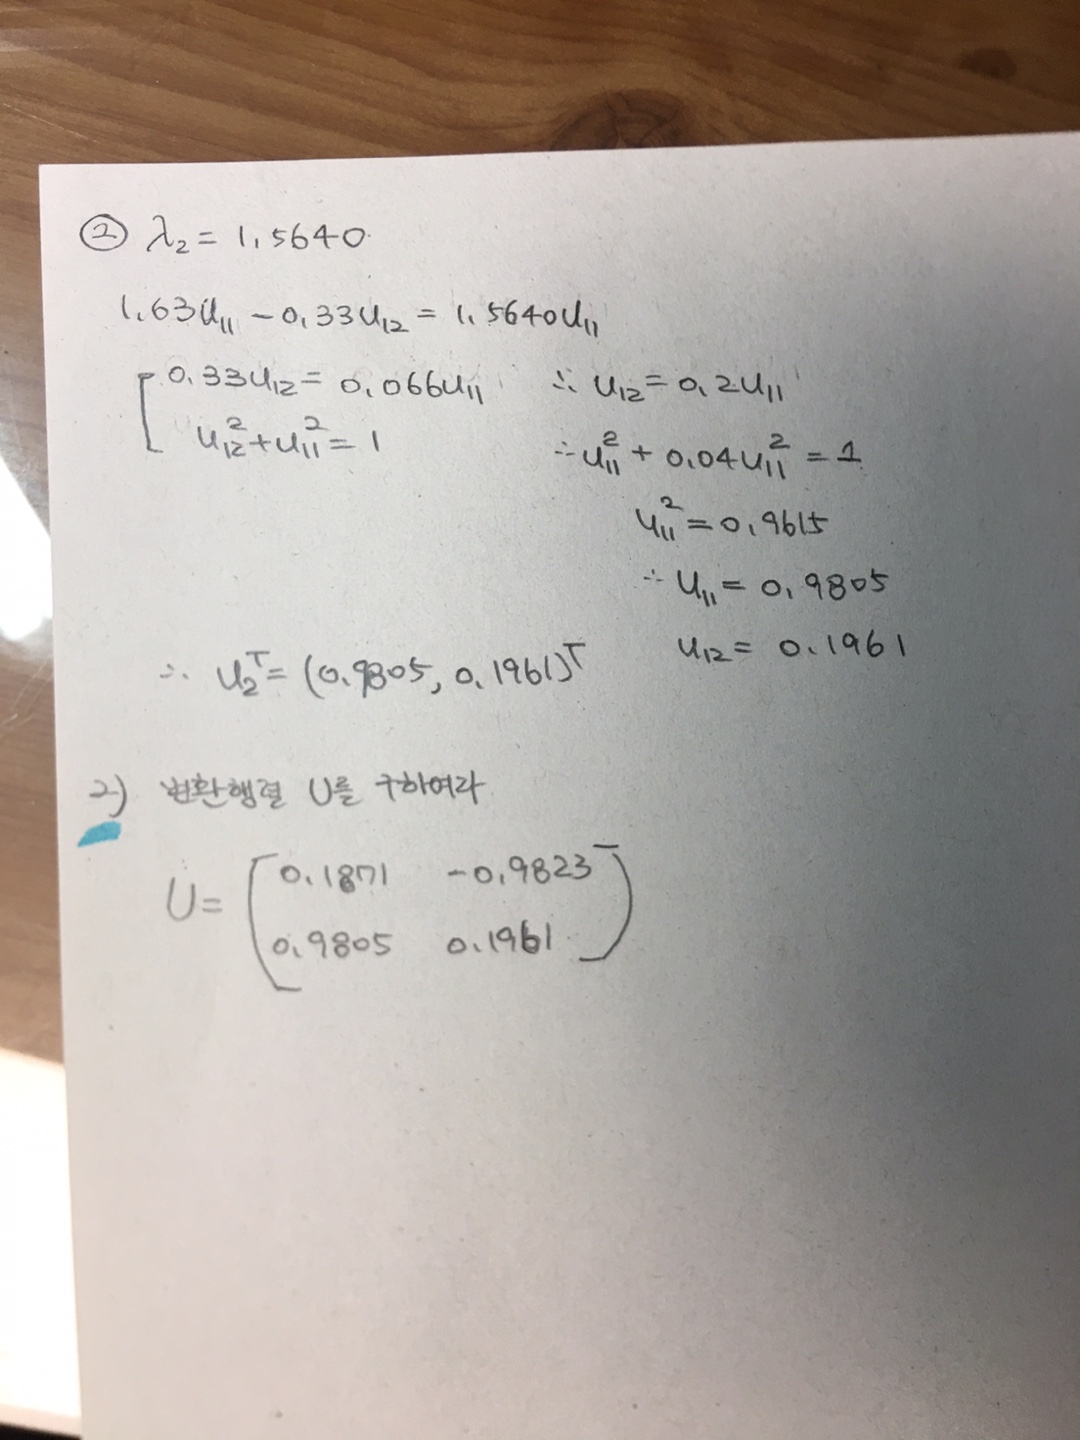 ② λ₂ = 1.5640
1.63u₁₁ - 0.33u₁₂ = 1.5640u₁₁
0.33u₁₂ = 0.066u₁₁ ∴ u₁₂ = 0.2u₁₁
u₁₂² + u₁₁² = 1 ∴ u₁₁² + 0.04u₁₁² = 1
u₁₁² = 0.9615
∴ u₁₁ = 0.9805
u₁₂ = 0.1961
∴ u₂ᵀ = (0.9805, 0.1961)ᵀ
2) 변환행렬 U를 구하여라
U = [0.1871 -0.9823
0.9805 0.1961]